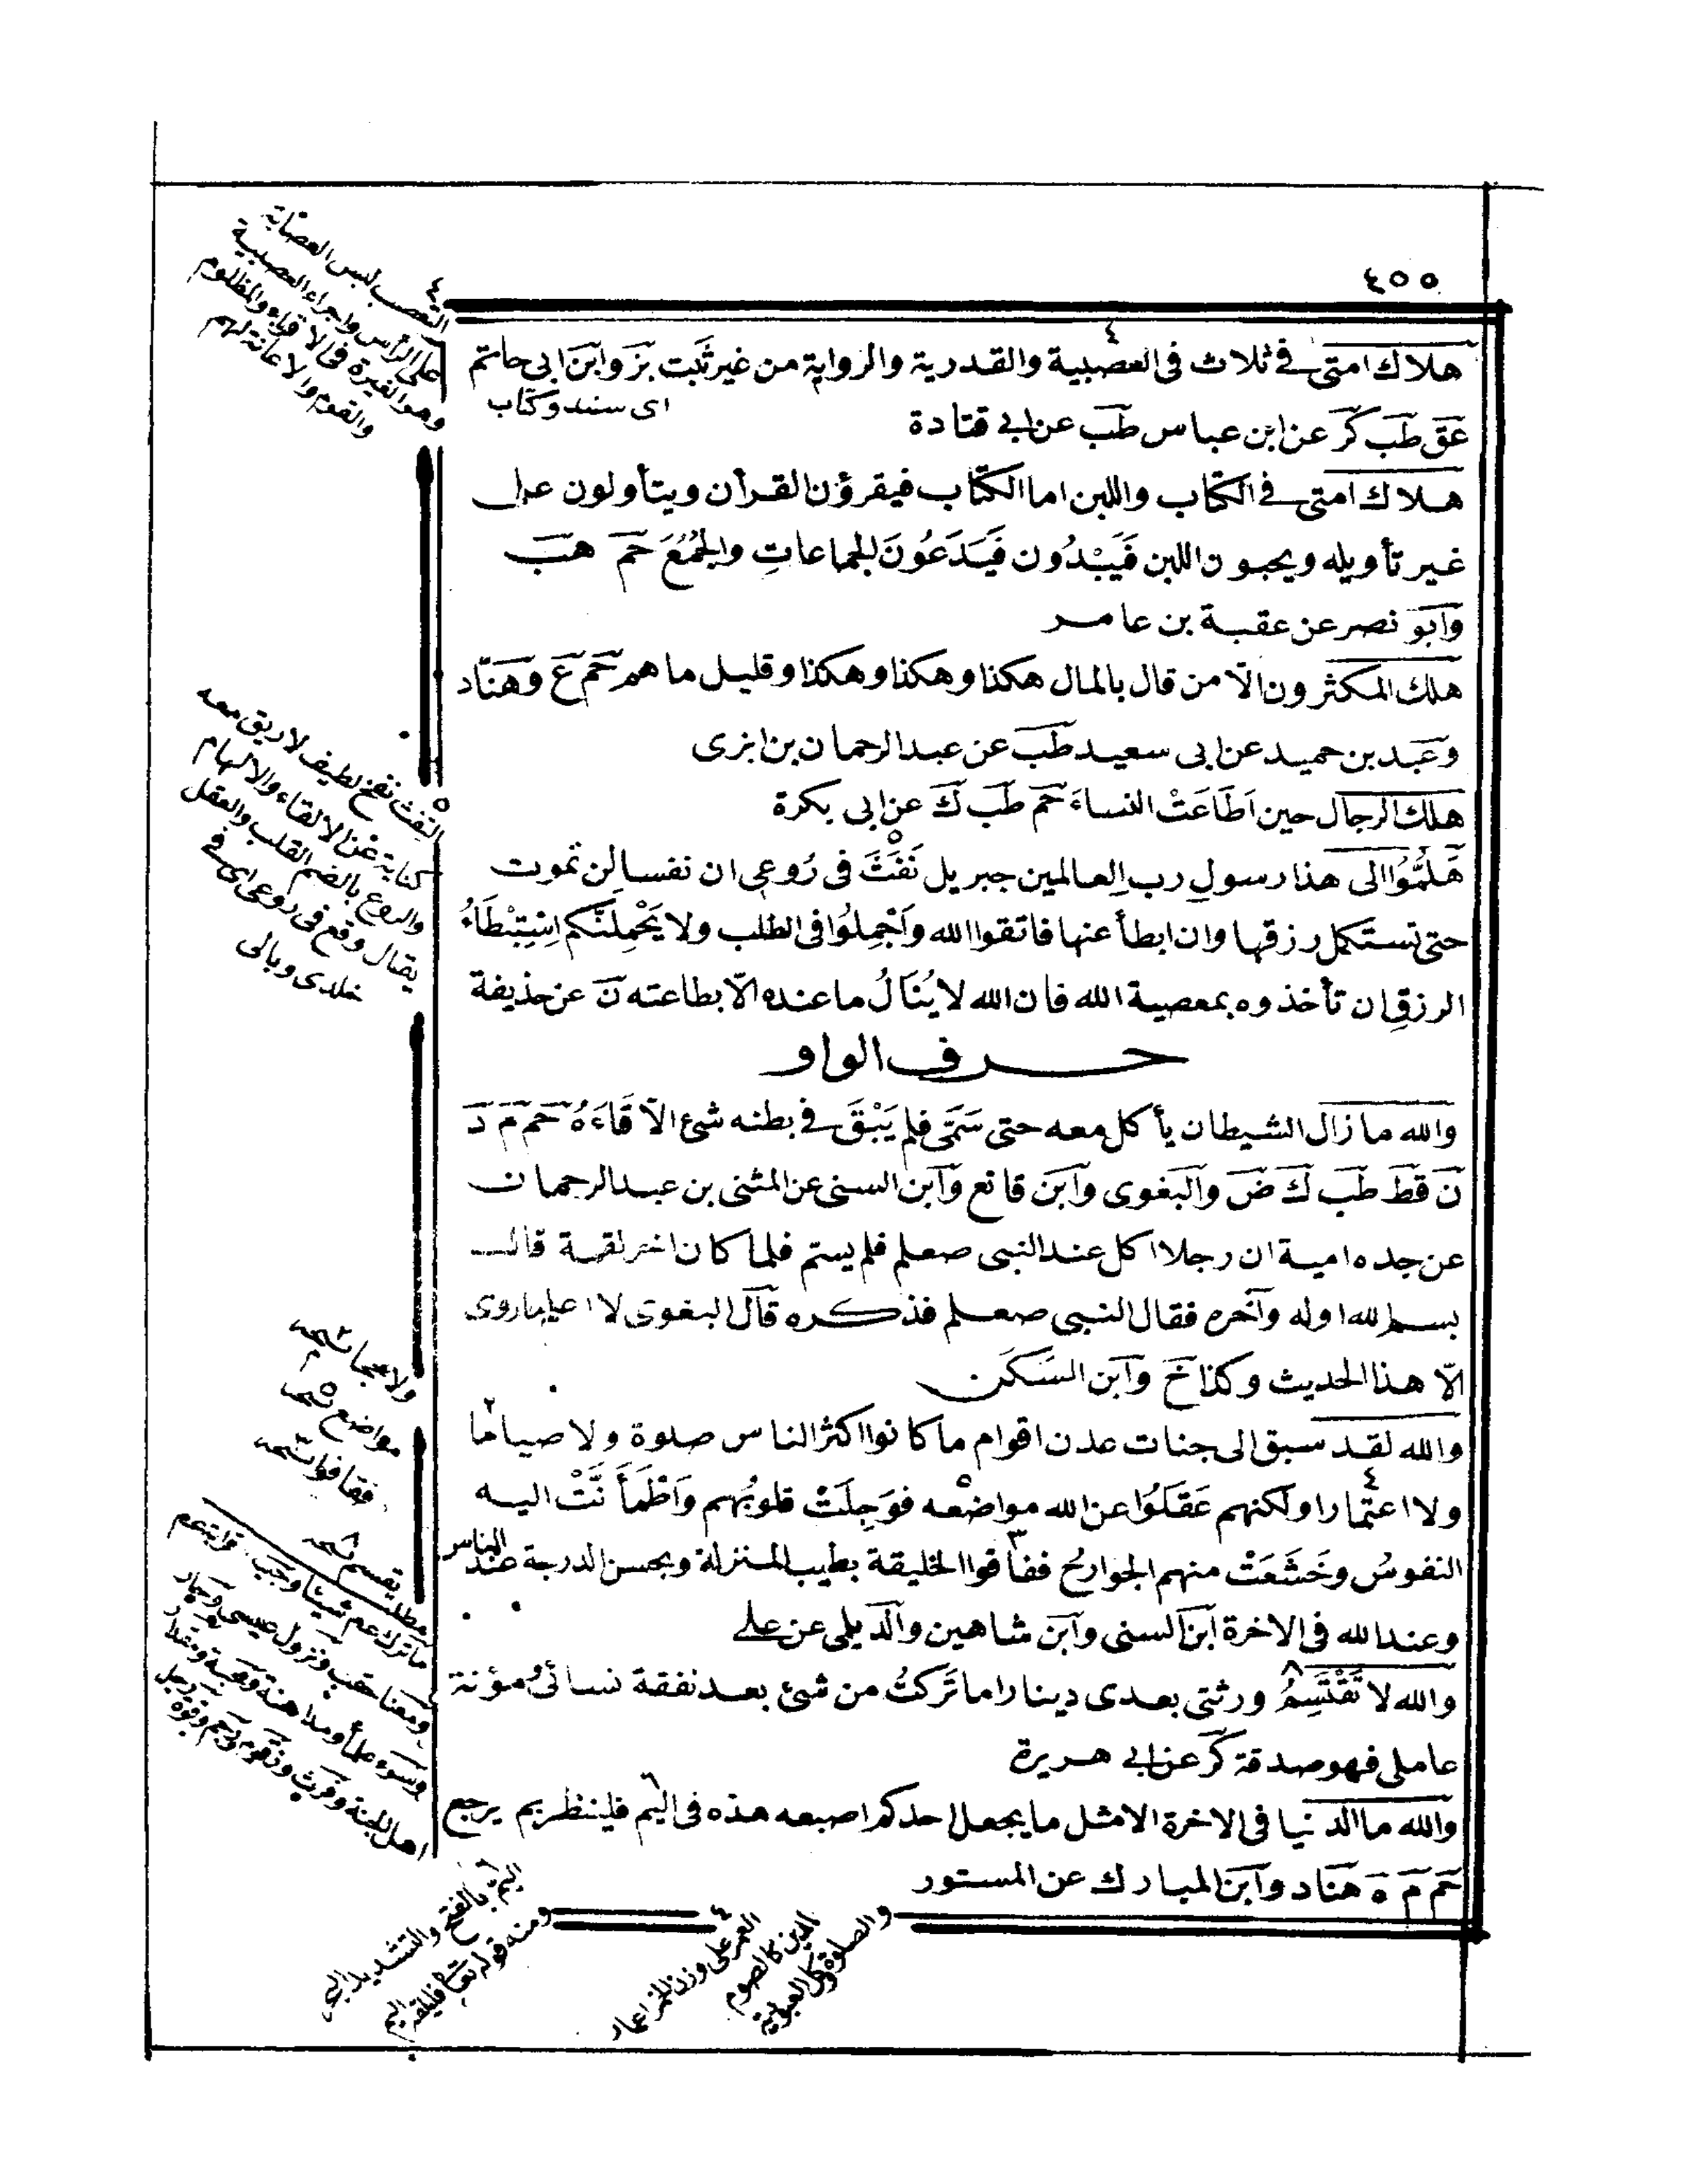 ٤٥٥
هلاك امتى فى ثلاث فى العصبية والقدرية والرواية من غير ثبت بز وابن ابى حاتم
اى سند وكتاب
عق طب كر عن ابن عباس طب عن ابى قتادة
هلاك امتى فى الكتاب واللبن اما الكتاب فيقرؤن القرأن ويتأولون على
غير تأويله ويحبون اللبن فَيَبْدُون فَيَدَعُونَ الجماعاتِ والجُمُعَ حم هب
وابو نصر عن عقبة بن عامر
هلك المكثرون الّا من قال بالمال هكذا وهكذا وهكذا وقليل ما هم حم ع وهنّاد
وعبد بن حميد عن ابى سعيد طب عن عبد الرحمان بن ابزى
هلك الرجال حين اَطَاعَتْ النساءَ حم طب ك عن ابى بكرة
هَلُمُّوا الى هذا رسول رب العالمين جبريل نَفَثَ فى رُوعى ان نفسا لن تموت
حتى تستكمل رزقها وان ابطأ عنها فاتقوا الله وَاَجْمِلُوا فى الطلب ولا يَحْمِلَنَّكم اسْتِبْطَاءُ
الرزقِ ان تأخذوه بمعصية الله فان الله لا يُنَالُ ما عنده الّا بطاعته ن عن حذيفة
حرف الواو
والله ما زال الشيطان يأكل معه حتى سَمَّى فلم يَبْقَ فى بطنه شئ الّا قَاءَهُ حم م د
ن قط طب ك ض والبغوى وابن قانع وابن السنى عن المثنى بن عبد الرحمان
عن جده امية ان رجلا اكل عند النبى صعلم فلم يسم فلما كان اخر لقمة قال
بسم الله اوله وآخره فقال النبى صعلم فذكره قال البغوى لا اعلم روى
الّا هذا الحديث وكذا خ وابن السَكَن
والله لقد سبق الى جنات عدن اقوام ما كانوا اكثر الناس صلوة ولا صياما
ولا اعتمارا ولكنهم عَقَلُوا عن الله مواضعه فوَجِلَتْ قلوبُهم وَاطْمَأَنَّتْ اليه
النفوسُ وخَشَعَتْ منهم الجوارحُ ففاقوا الخليقة بطيب المنزلة وبحسن الدرجة عند الناس
وعند الله فى الاخرة ابن السنى وابن شاهين والديلمى عن على
والله لا تَقْتَسِمُ ورثتى بعدى دينارا ما تَرَكتُ من شئ بعد نفقة نسائى ومؤنة
عاملى فهو صدقة كر عن ابى هريرة
والله ما الدنيا فى الاخرة الا مثل ما يجعل احدكم اصبعه هذه فى اليم فلينظر بم يرجع
حم م ه هناد وابن المبارك عن المستور
٤
التعصب لبس العصابة
على الرأس واجراء العصبية
وهو الغيرة فى الاقرباء والمظلوم
والقوم والاعانة لهم
٥
النفث نفخ لطيف لا ريق معه
كناية عن الالقاء والالهام
والروع بالضم القلب والعقل
يقال وقع فى روعى اى فى
خلدى وبالى
ولا حجا نسخه
مواضع نسخه
فقافوا نسخه
يقسم نسخه
اليم بالفتح والتشديد البحر
ومنه قوله تعالى فليلقه اليم
العمر على وزن
الدين كالصوم
والصلوة